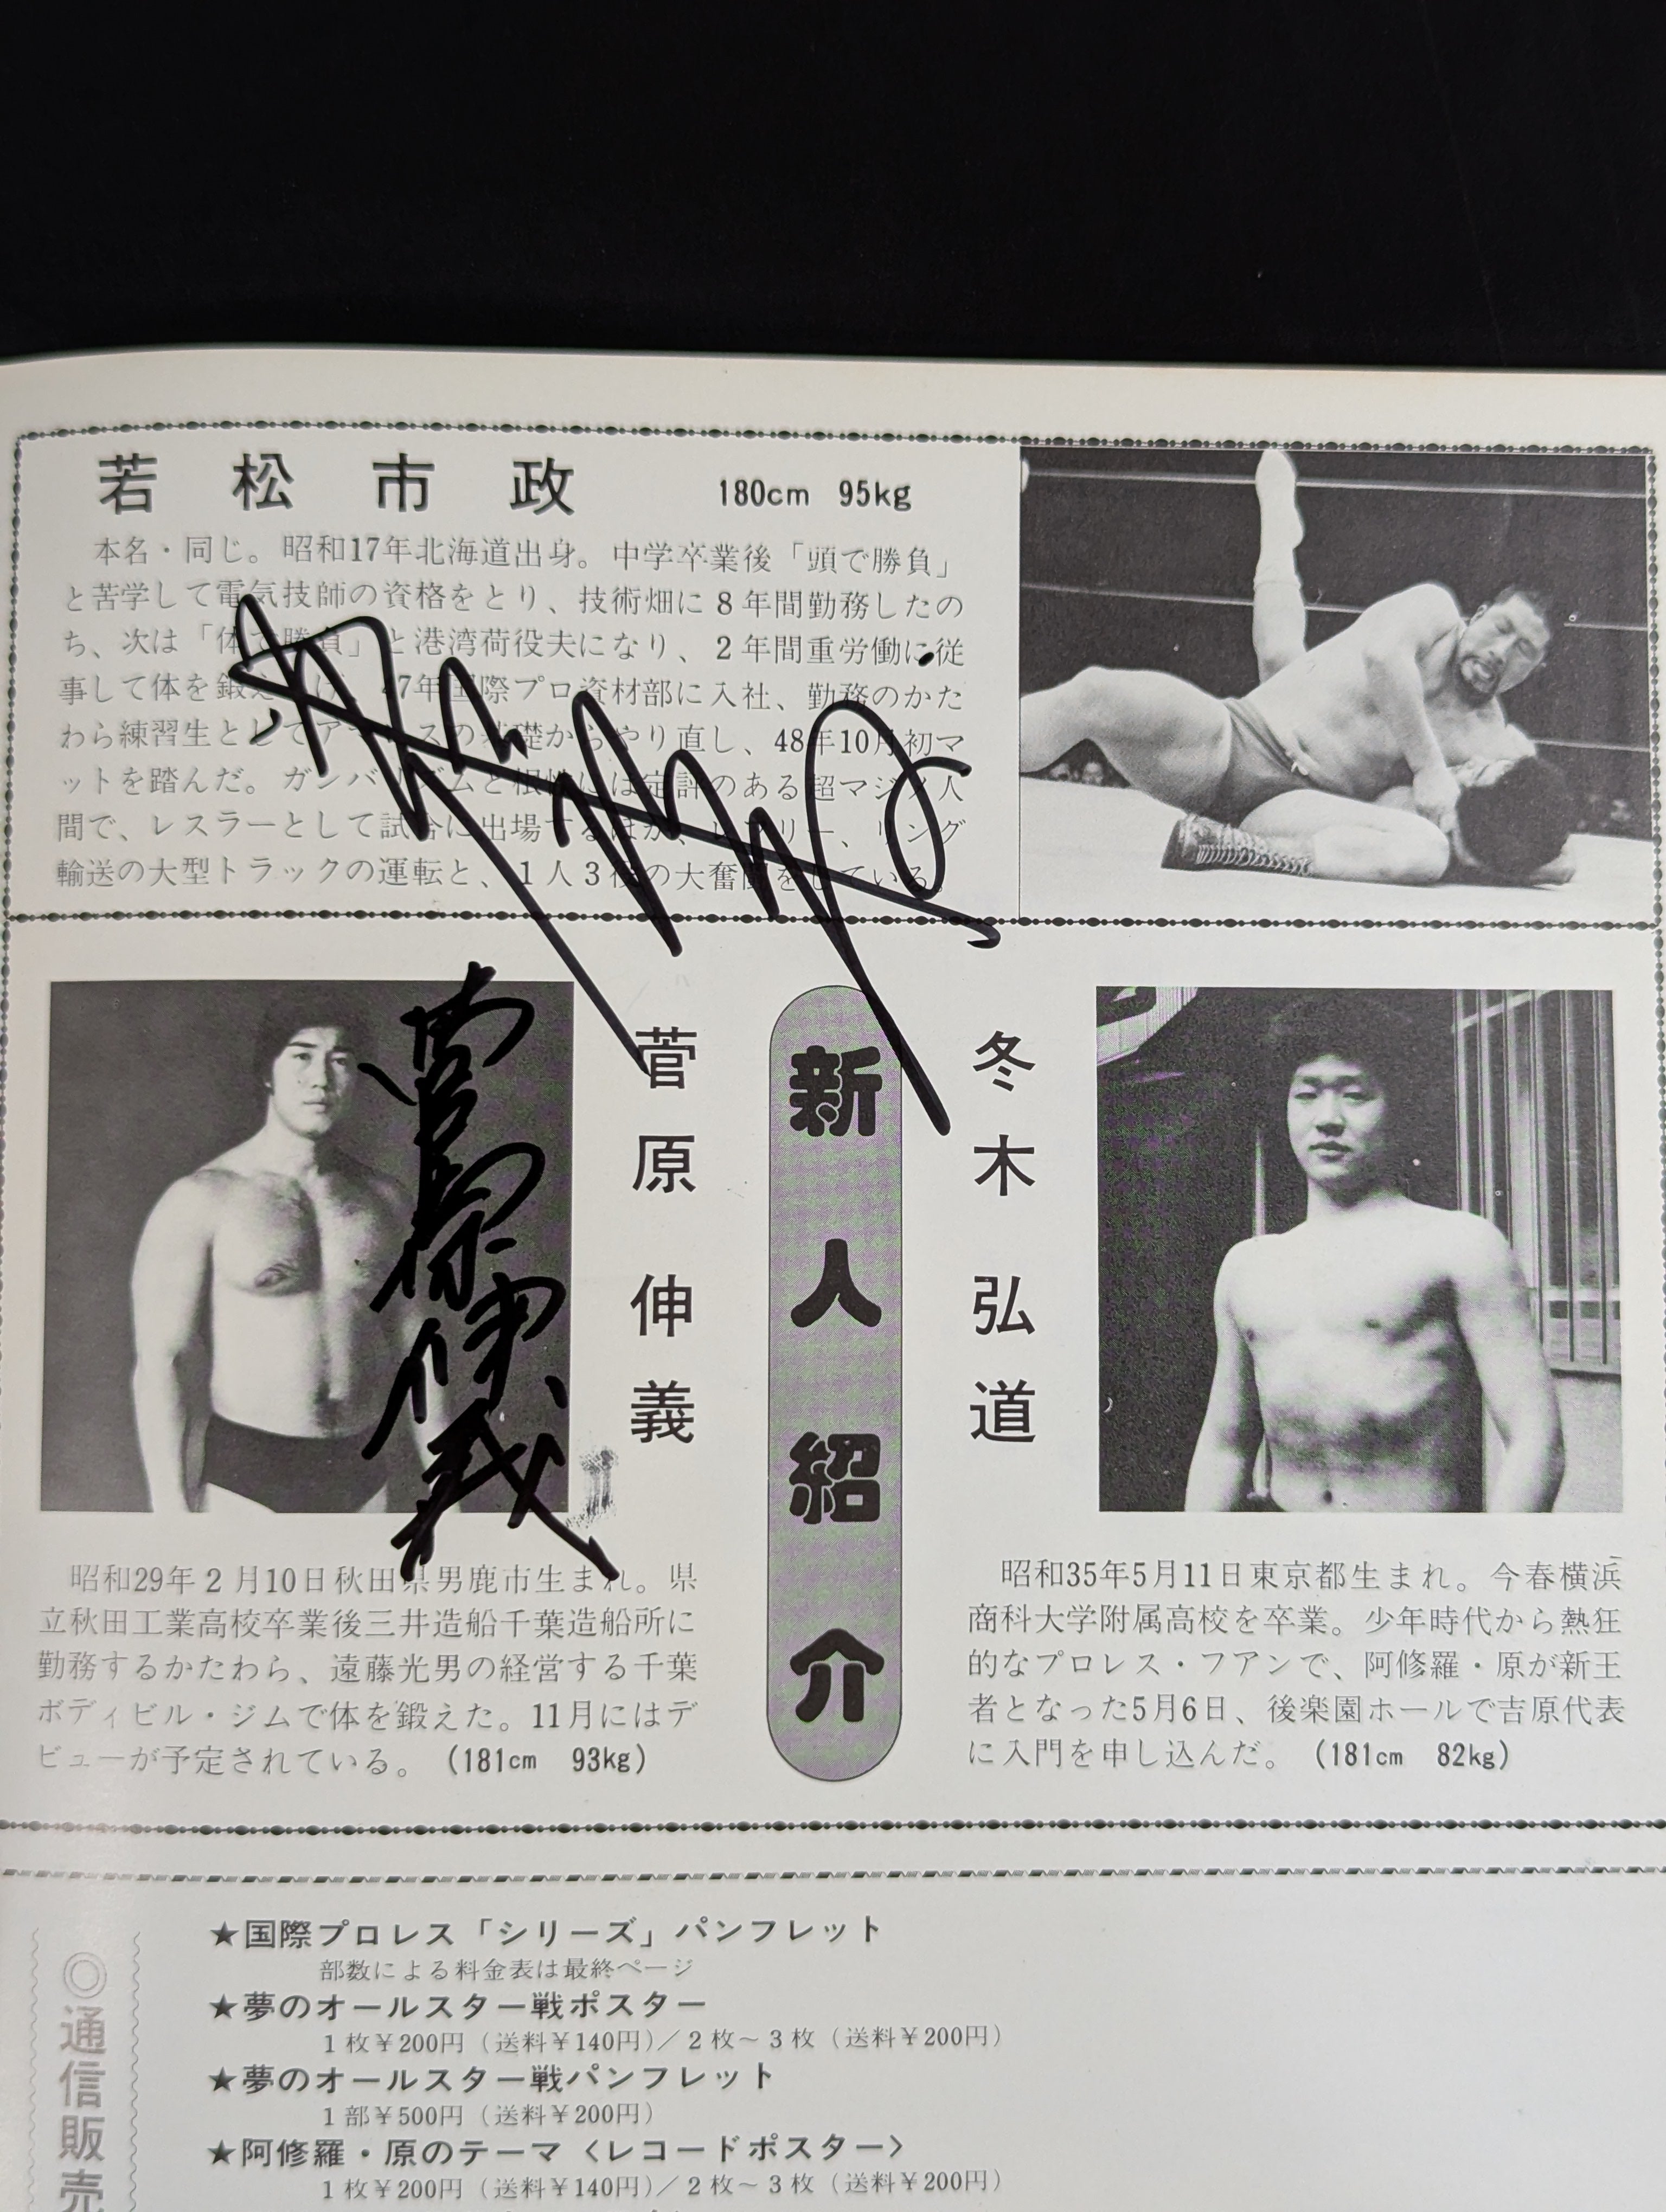 若松市政 180cm 95kg
本名・同じ。昭和17年北海道出身。中学卒業後「頭で勝負」
と苦学して電気技師の資格をとり、技術畑に8年間勤務したの
ち、次は「体で勝負」と港湾荷役夫になり、2年間重労働に従
事して体を鍛えあげ、47年国際プロ資材部に入社、勤務のかた
わら練習生としてアマレスの基礎からやり直し、48年10月初マ
ットを踏んだ。ガンバリズムと根性には定評のある超マジメ人
間で、レスラーとして試合に出場するほか、レフリー、リング
輸送の大型トラックの運転と、1人3役の大奮闘をしている。
新人紹介
冬木弘道
昭和35年5月11日東京都生まれ。今春横浜
商科大学附属高校を卒業。少年時代から熱狂
的なプロレス・フアンで、阿修羅・原が新王
者となった5月6日、後楽園ホールで吉原代表
に入門を申し込んだ。(181cm 82kg)
菅原伸義
菅原伸義
昭和29年2月10日秋田県男鹿市生まれ。県
立秋田工業高校卒業後三井造船千葉造船所に
勤務するかたわら、遠藤光男の経営する千葉
ボディビル・ジムで体を鍛えた。11月にはデ
ビューが予定されている。(181cm 93kg)
◎通信販売
★国際プロレス「シリーズ」パンフレット
部数による料金表は最終ページ
★夢のオールスター戦ポスター
1枚¥200円(送料¥140円)/2枚〜3枚(送料¥200円)
★夢のオールスター戦パンフレット
1部¥500円(送料¥200円)
★阿修羅・原のテーマ〈レコードポスター〉
1枚¥200円(送料¥140円)/2枚〜3枚(送料¥200円)